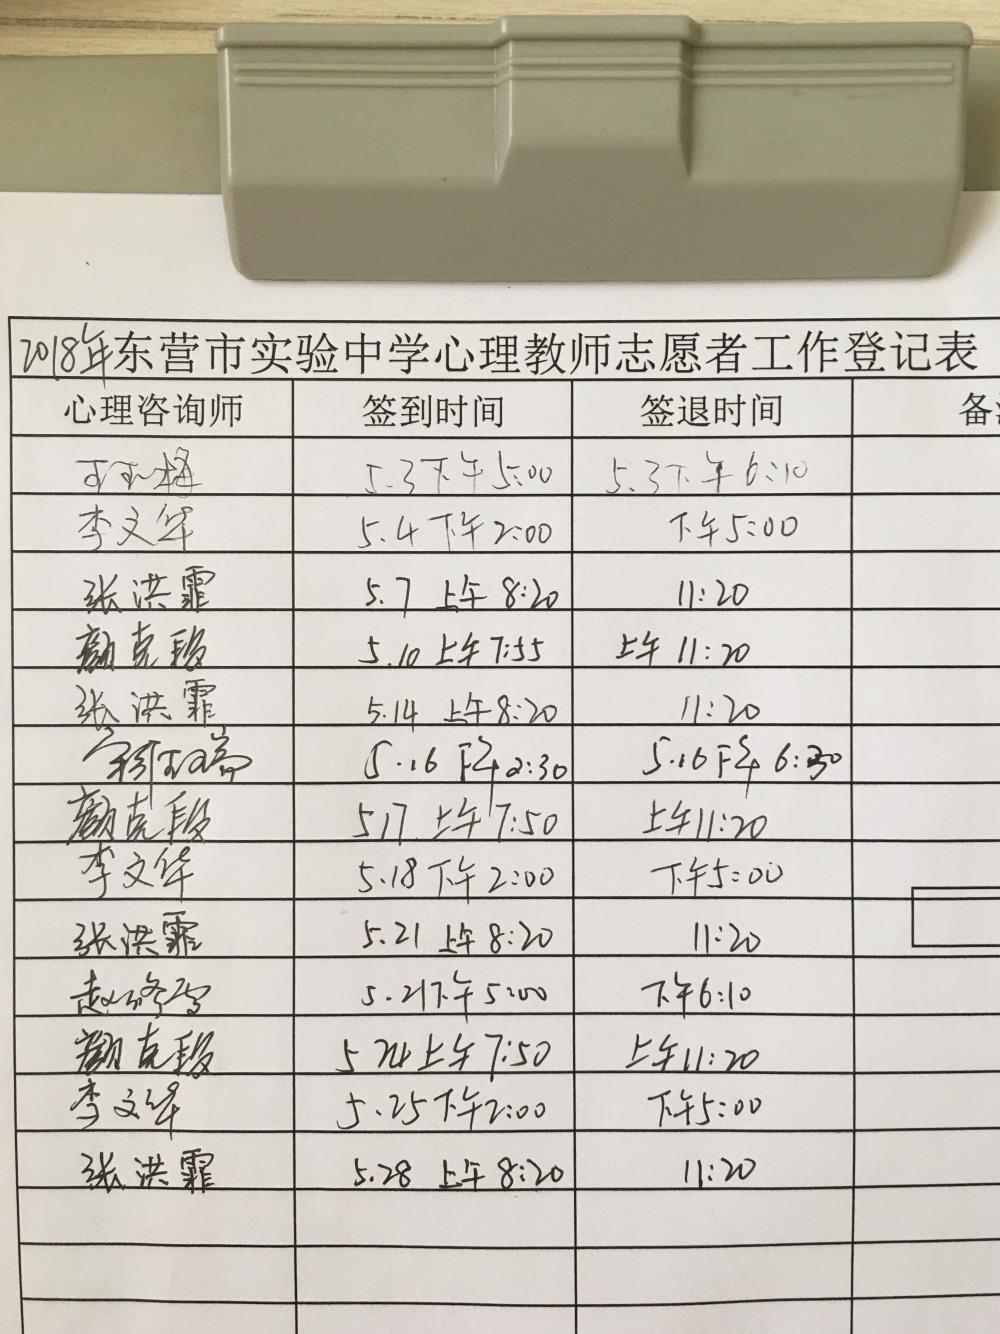 2018年东营市实验中学心理教师志愿者工作登记表
心理咨询师 签到时间 签退时间 备
5.3下午5:00 5.3下午6:10
李文华 5.4 下午2:00 下午5:00
张洪霏 5.7 上午 8:20 11:20
颜克段 5.10 上午7:55 上午 11:20
张洪霏 5.14 上午8:20 11:20
5.16 下午2:30 5.16下午 6:30
颜克段 5.17 上午7:50 上午11:20
李文华 5.18 下午2:00 下午5:00
张洪霏 5.21 上午 8:20 11:20
5.21下午5:00 下午6:10
颜克段 5.24上午7:50 上午11:20
李文华 5.25下午2:00 下午5:00
张洪霏 5.28 上午 8:20 11:20